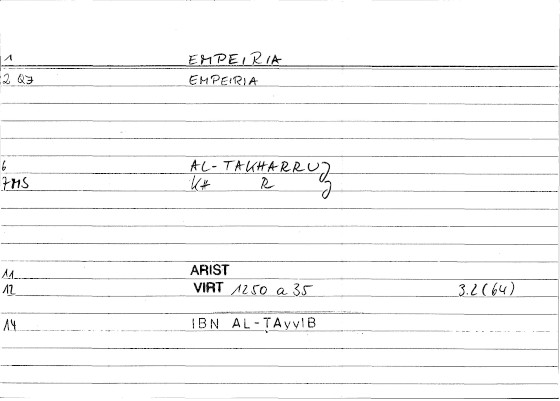 1 EMPEIRIA
2 QZ EMPEIRIA
6 AL-TAKHARRUJ
7 MS KH R J
11 ARIST
12 VIRT 1250 a 35 3.2(64)
14 IBN AL-ṬAyyIB